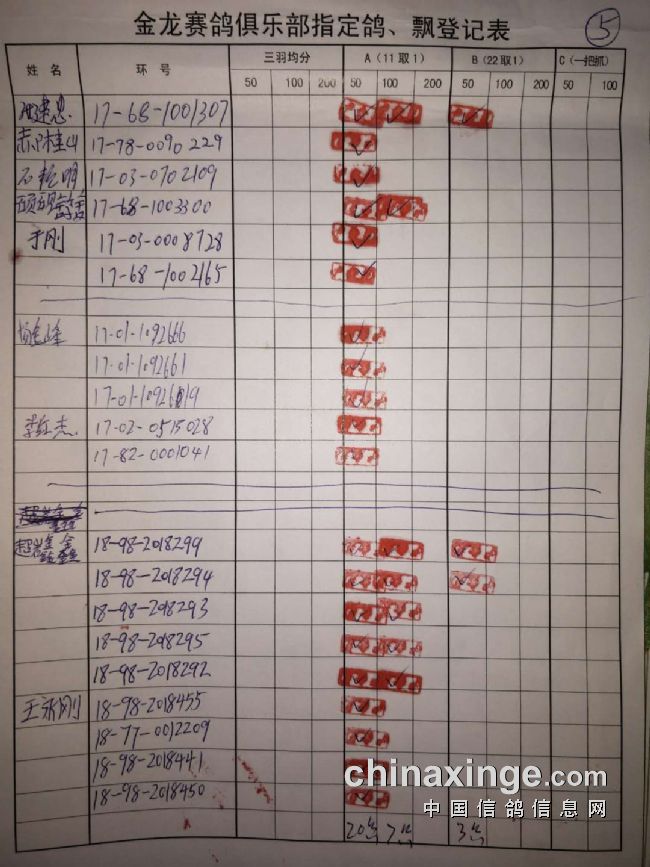 金龙赛鸽俱乐部指定鸽、飘登记表 5
姓名 环号 三羽均分 A(11取1) B(22取1) C(一把抓)
50 100 200 50 100 200 50 100 200 50 100
17-68-1001307
17-78-0090229
17-03-0702109
17-68-1003300
于刚 17-03-0008728
17-68-1002165
17-01-1092666
17-01-1092661
17-01-1092619
李红杰 17-02-0515028
17-82-0001041
18-98-2018299
18-98-2018294
18-98-2018293
18-98-2018295
18-98-2018292
王永刚 18-98-2018455
18-77-0012209
18-98-2018441
18-98-2018450
20 7 3
chinaxinge.com
中国信鸽信息网